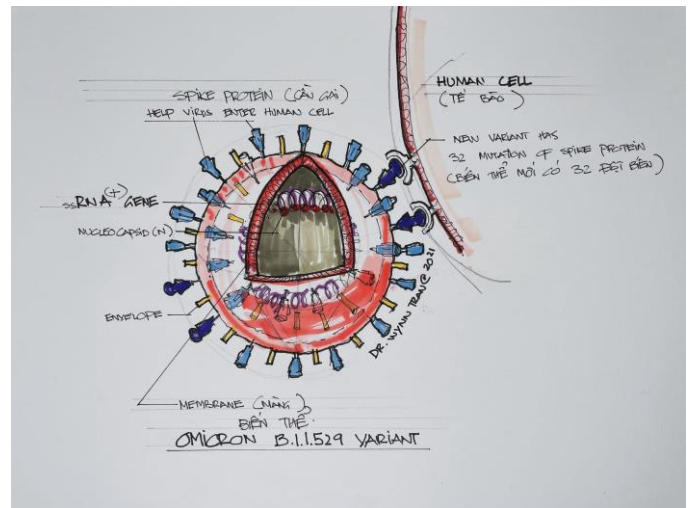 SPIKE PROTEIN (CÂU GAI)
HELP VIRUS ENTER HUMAN CELL
HUMAN CELL
(TẾ BÀO)
NEW VARIANT HAS
32 MUTATION OF SPIKE PROTEIN
(BIẾN THỂ MỚI CÓ 32 ĐỘT BIẾN)
ssRNA(+) GENE
NUCLEOCAPSID (N)
ENVELOPE
DR. WYNN TRAN@ 2021
MEMBRANE (MÀNG)
BIẾN THỂ
OMICRON B.1.1.529 VARIANT